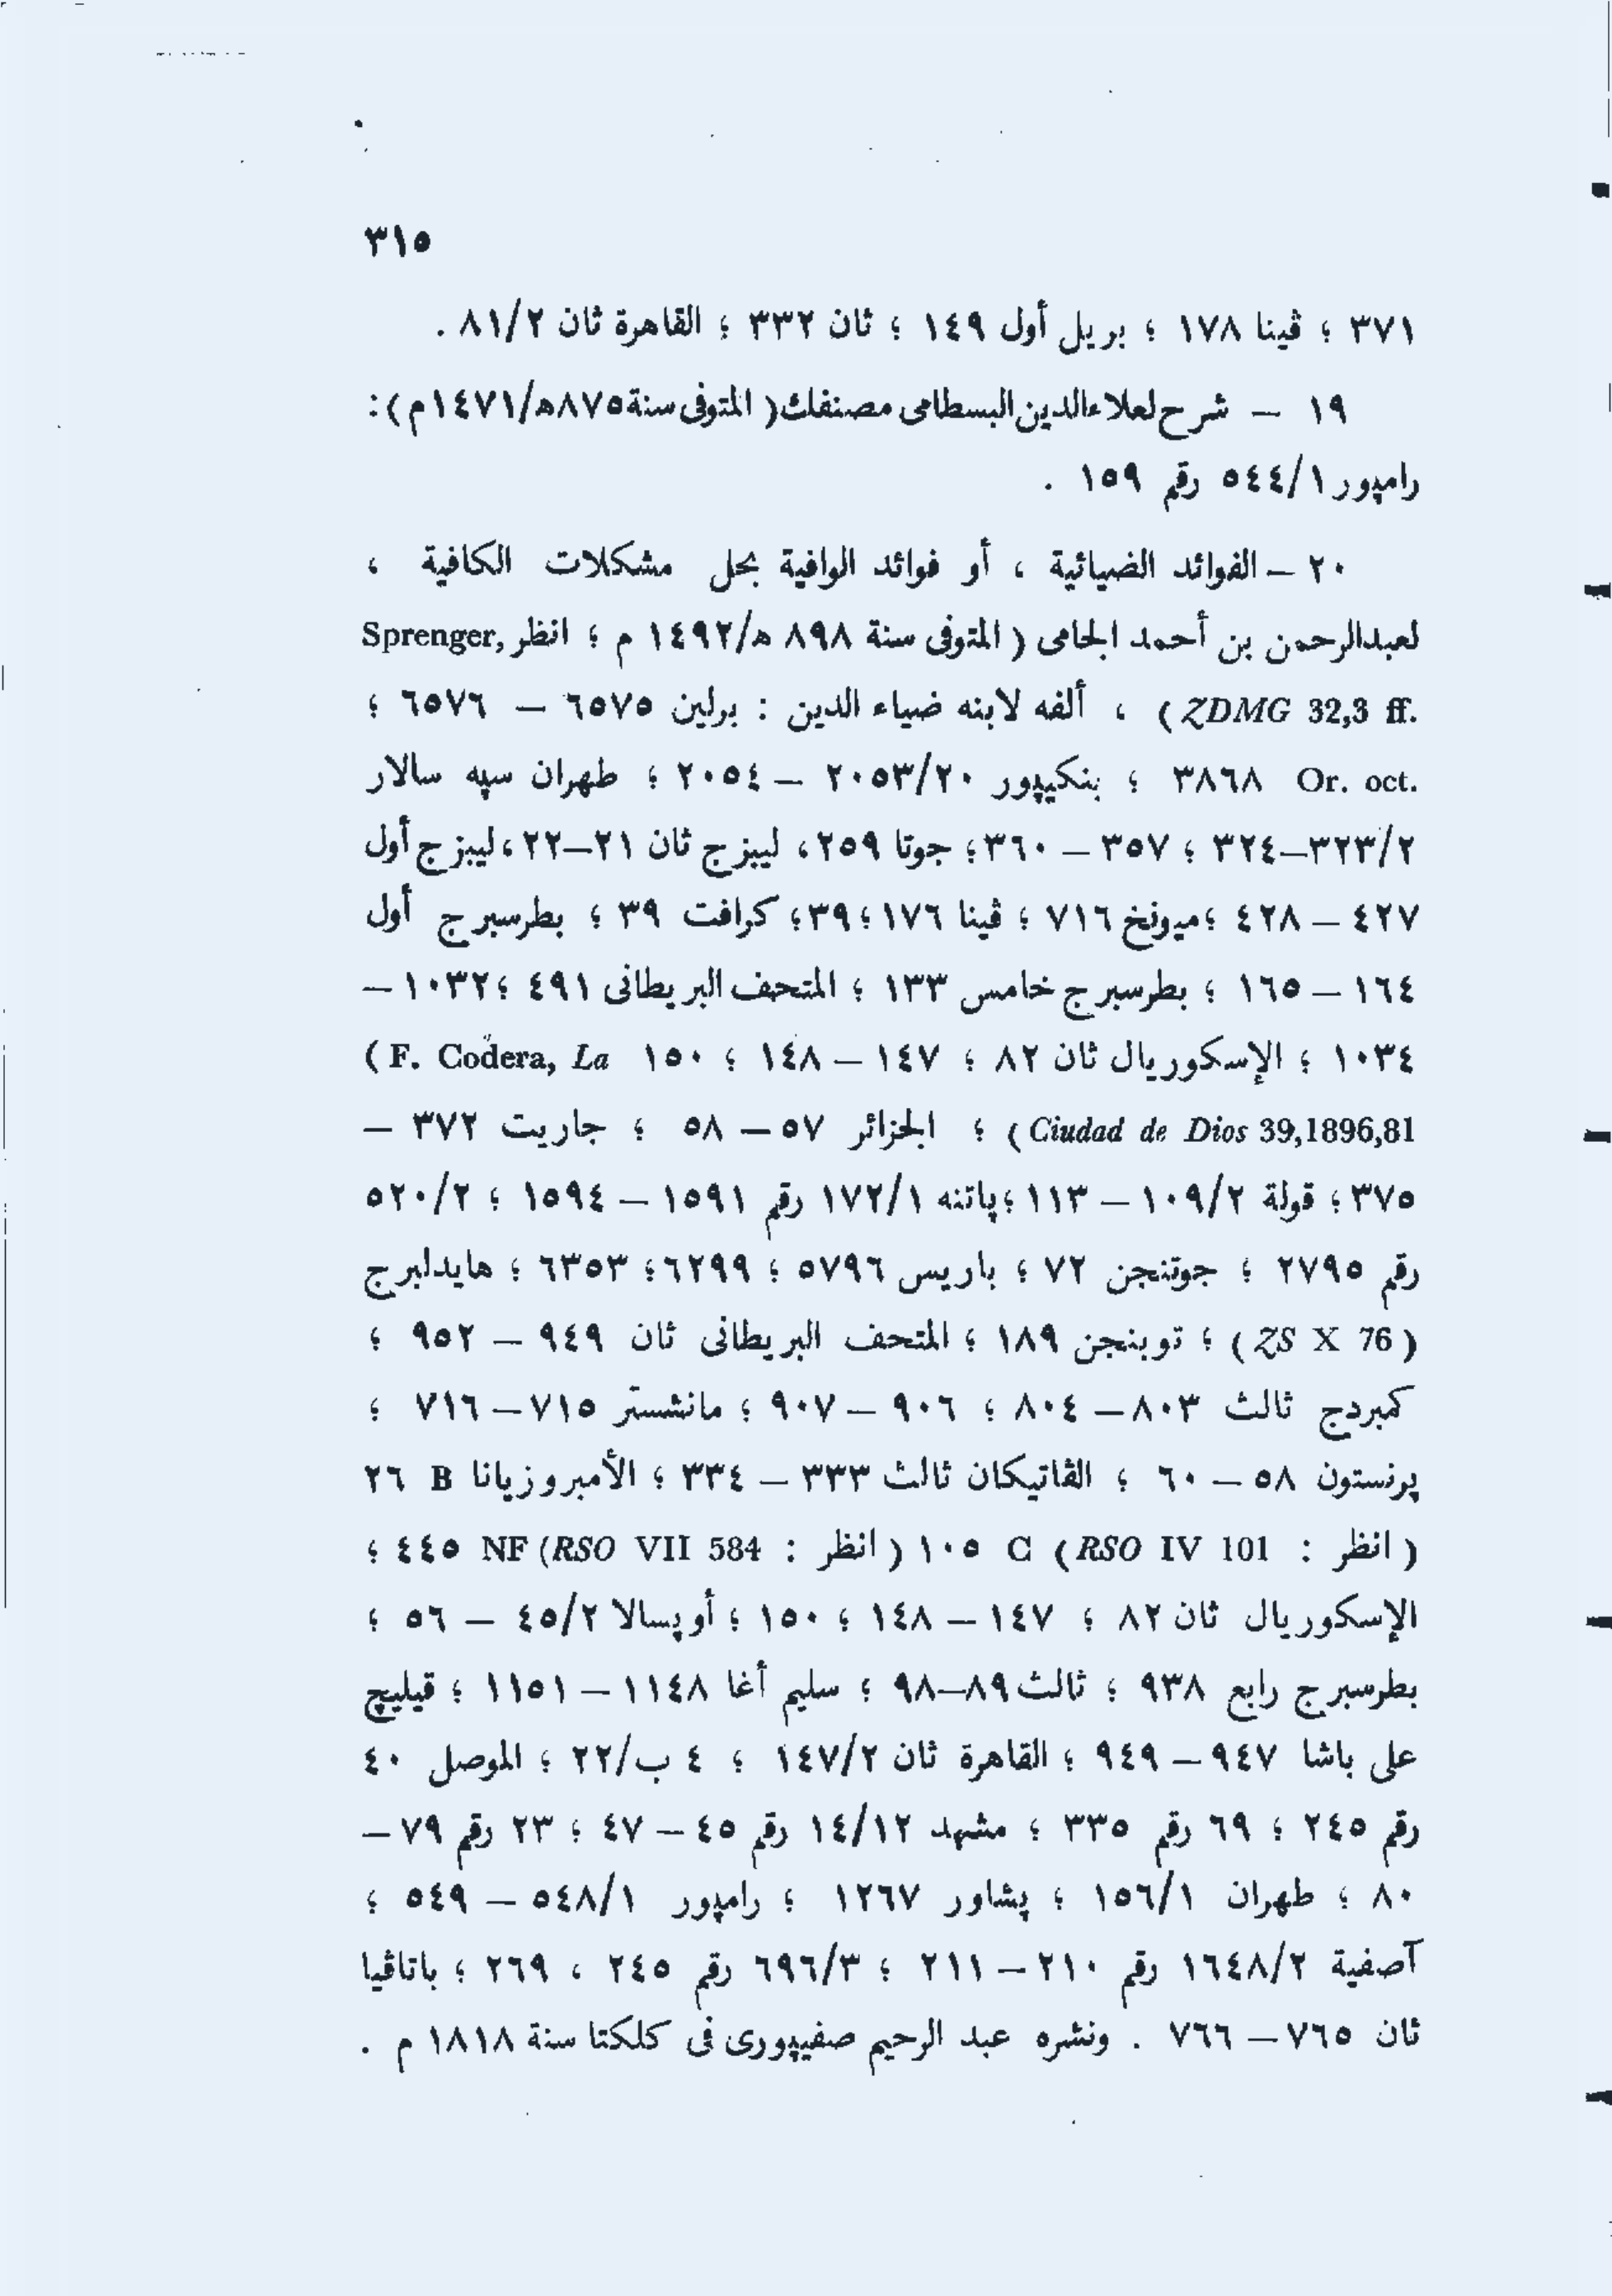 ٣١٥
٣٧١ ؛ ڤينا ١٧٨ ؛ بريل أول ١٤٩ ؛ ثان ٣٣٢ ؛ القاهرة ثان ٨١/٢ .
١٩ – شرح لعلاء الدين البسطامى مصنفك ( المتوفى سنة ٨٧٥ه/١٤٧١م ) :
رامپور ٥٤٤/١ رقم ١٥٩ .
٢٠ – الفوائد الضيائية ، أو فوائد الوافية بحل مشكلات الكافية ،
لعبدالرحمن بن أحمد الجامى ( المتوفى سنة ٨٩٨ ه/١٤٩٢ م ؛ انظر Sprenger,
ZDMG 32,3 ff. ) ، ألفه لابنه ضياء الدين : برلين ٦٥٧٥ – ٦٥٧٦ ؛
Or. oct. ٣٨٦٨ ؛ بنكيپور ٢٠٥٣/٢٠ – ٢٠٥٤ ؛ طهران سپه سالار
٣٢٣/٢–٣٢٤ ؛ ٣٥٧ – ٣٦٠ ؛ جوتا ٢٥٩ ، ليبزج ثان ٢١–٢٢ ، ليبزج أول
٤٢٧ – ٤٢٨ ؛ ميونخ ٧١٦ ؛ ڤينا ١٧٦ ؛ ٣٩ ؛ كرافت ٣٩ ؛ بطرسبرج أول
١٦٤ – ١٦٥ ؛ بطرسبرج خامس ١٣٣ ؛ المتحف البريطانى ٤٩١ ؛ ١٠٣٢ –
١٠٣٤ ؛ الإسكوريال ثان ٨٢ ؛ ١٤٧ – ١٤٨ ؛ ١٥٠ ( F. Codera, La
Ciudad de Dios 39,1896,81 ) ؛ الجزائر ٥٧ – ٥٨ ؛ جاريت ٣٧٢ –
٣٧٥ ؛ قولة ١٠٩/٢ – ١١٣ ؛ پاتنه ١٧٢/١ رقم ١٥٩١ – ١٥٩٤ ؛ ٥٢٠/٢
رقم ٢٧٩٥ ؛ جوتنجن ٧٢ ؛ باريس ٥٧٩٦ ؛ ٦٢٩٩ ؛ ٦٣٥٣ ؛ هايدلبرج
( ZS X 76 ) ؛ توبنجن ١٨٩ ؛ المتحف البريطانى ثان ٩٤٩ – ٩٥٢ ؛
كمبردج ثالث ٨٠٣ – ٨٠٤ ؛ ٩٠٦ – ٩٠٧ ؛ مانشستر ٧١٥ – ٧١٦ ؛
پرنستون ٥٨ – ٦٠ ؛ الڤاتيكان ثالث ٣٣٣ – ٣٣٤ ؛ الأمبروزيانا B ٢٦
( انظر : RSO IV 101 ) C ١٠٥ ( انظر : RSO VII 584 ) NF ٤٤٥ ؛
الإسكوريال ثان ٨٢ ؛ ١٤٧ – ١٤٨ ؛ ١٥٠ ؛ أوپسالا ٤٥/٢ – ٥٦ ؛
بطرسبرج رابع ٩٣٨ ؛ ثالث ٨٩–٩٨ ؛ سليم أغا ١١٤٨ – ١١٥١ ؛ قيليچ
على باشا ٩٤٧ – ٩٤٩ ؛ القاهرة ثان ١٤٧/٢ ؛ ٤ ب/٢٢ ؛ الموصل ٤٠
رقم ٢٤٥ ؛ ٦٩ رقم ٣٣٥ ؛ مشهد ١٤/١٢ رقم ٤٥ – ٤٧ ؛ ٢٣ رقم ٧٩ –
٨٠ ؛ طهران ١٥٦/١ ؛ پشاور ١٢٦٧ ؛ رامپور ٥٤٨/١ – ٥٤٩ ؛
آصفية ١٦٤٨/٢ رقم ٢١٠ – ٢١١ ؛ ٦٩٦/٣ رقم ٢٤٥ ، ٢٦٩ ؛ باتاڤيا
ثان ٧٦٥ – ٧٦٦ . ونشره عبد الرحيم صفيپورى فى كلكتا سنة ١٨١٨ م .